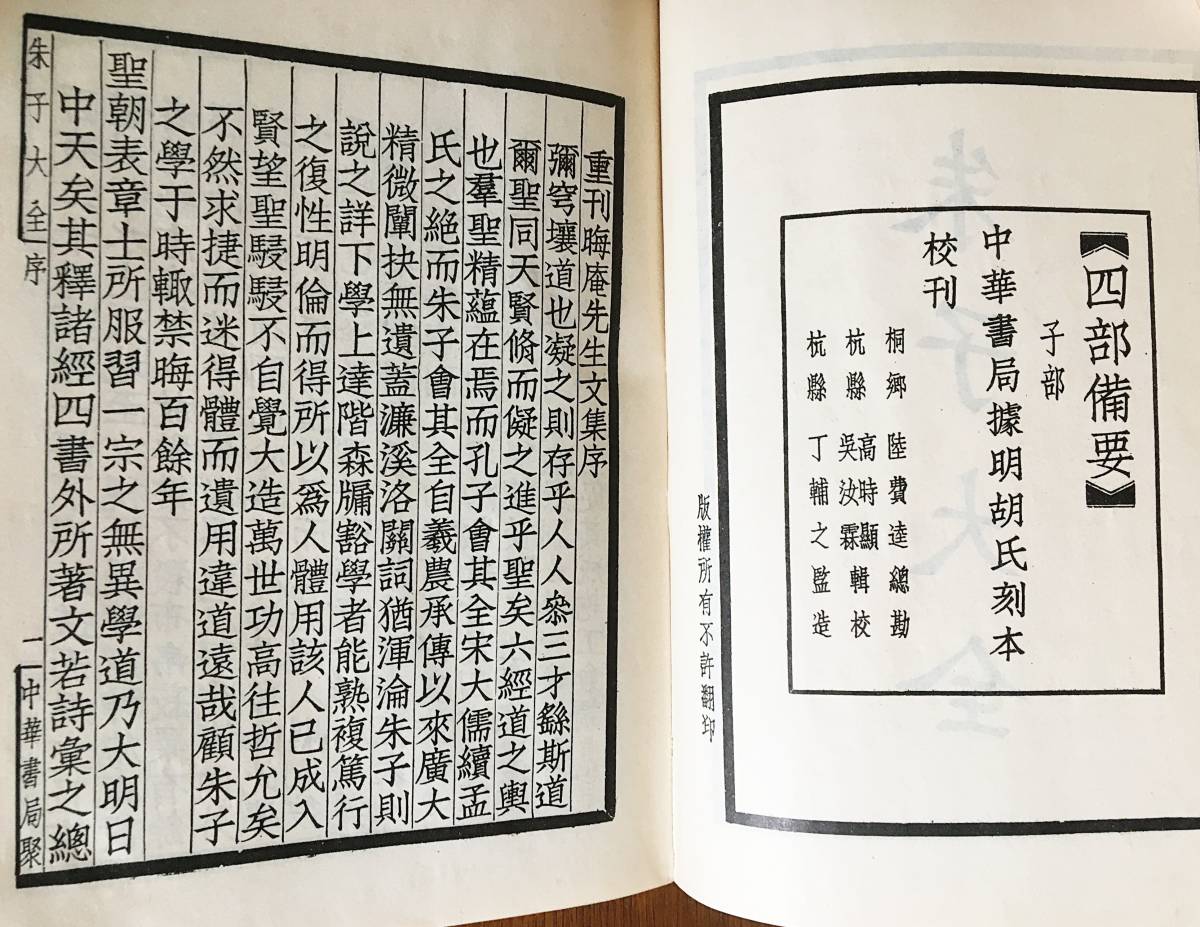 《四部備要》
子部
中華書局據明胡氏刻本
校刊
桐鄉陸費逵總勘
杭縣高時顯吳汝霖輯校
杭縣丁輔之監造
版權所有不許翻印
重刊晦庵先生文集序
彌穹壤道也凝之則存乎人人叅三才繇斯道
爾聖同天賢脩而儗之進乎聖矣六經道之輿
也羣聖精蘊在焉而孔子會其全宋大儒續孟
氏之絕而朱子會其全自羲農承傳以來廣大
精微闡抉無遺蓋濂溪洛關詞猶渾淪朱子則
說之詳下學上達階森牖豁學者能熟複篤行
之復性明倫而得所以爲人體用該人已成入
賢望聖駸駸不自覺大造萬世功高往哲允矣
不然求捷而迷得體而遺用違道遠哉顧朱子
之學于時輙禁晦百餘年
聖朝表章士所服習一宗之無異學道乃大明日
中天矣其釋諸經四書外所著文若詩彙之總
朱子大全序
一
中華書局聚